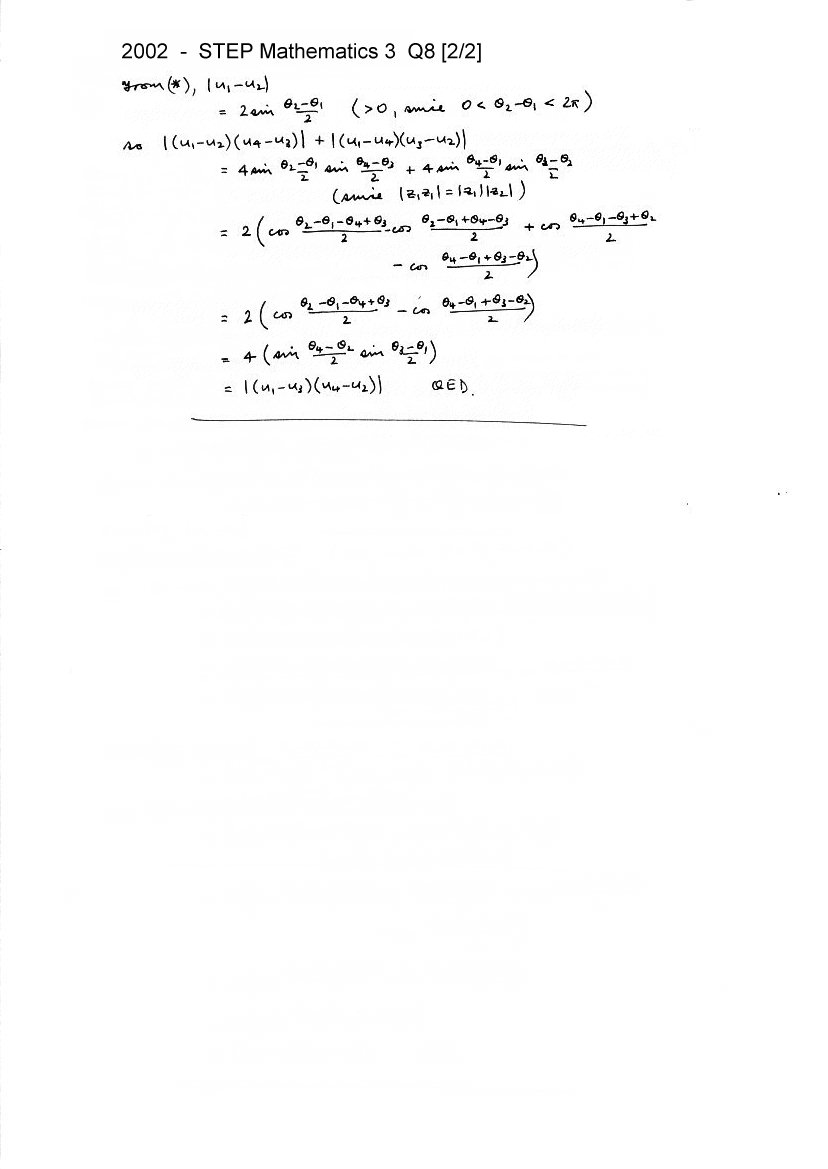 2002 - STEP Mathematics 3 Q8 [2/2]
From (*), |u₁-u₂|
= 2 sin (θ₂-θ₁)/2 (>0, since 0 < θ₂-θ₁ < 2π)
so |(u₁-u₂)(u₄-u₃)| + |(u₁-u₄)(u₃-u₂)|
= 4 sin (θ₂-θ₁)/2 sin (θ₄-θ₃)/2 + 4 sin (θ₄-θ₁)/2 sin (θ₃-θ₂)/2
(since |z₁z₂| = |z₁||z₂|)
= 2 ( cos (θ₂-θ₁-θ₄+θ₃)/2 - cos (θ₂-θ₁+θ₄-θ₃)/2 + cos (θ₄-θ₁-θ₃+θ₂)/2
- cos (θ₄-θ₁+θ₃-θ₂)/2 )
= 2 ( cos (θ₂-θ₁-θ₄+θ₃)/2 - cos (θ₄-θ₁+θ₃-θ₂)/2 )
= 4 ( sin (θ₄-θ₂)/2 sin (θ₃-θ₁)/2 )
= |(u₁-u₃)(u₄-u₂)| QED.